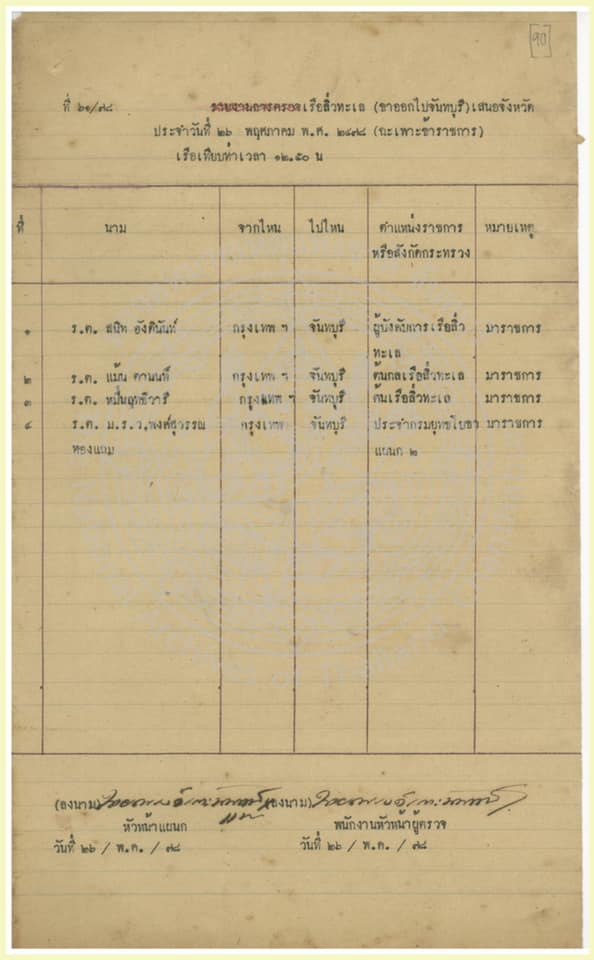 [90]
ที่ ๖๑/๗๘ รายงานการตรวจเรือสิ่วทะเล (ขาออกไปจันทบุรี) เสนอจังหวัด
ประจำวันที่ ๒๖ พฤศภาคม พ.ศ. ๒๔๗๘ (ฉะเพาะข้าราชการ)
เรือเทียบท่าเวลา ๑๒.๕๐ น
ที่ นาม จากไหน ไปไหน ตำแหน่งราชการ หมายเหตุ
หรือสังกัดกระทรวง
๑ ร.ต. สนิท อังตินันท์ กรุงเทพ ฯ จันทบุรี ผู้บังคับการเรือสิ่ว มาราชการ
ทะเล
๒ ร.ต. แม้น คานนท์ กรุงเทพ ฯ จันทบุรี ต้นกลเรือสิ่วทะเล มาราชการ
๓ ร.ต. หมื่นฤทธิวารี กรุงเทพ ฯ จันทบุรี ต้นเรือสิ่วทะเล มาราชการ
๔ ร.ต. ม.ร.ว.พงศ์สุวรรณ กรุงเทพ จันทบุรี ประจำกรมยุทธโยธา มาราชการ
ทองแถม แผนก ๒
(ลงนาม) (ลงนาม)
หัวหน้าแผนก พนักงานหัวหน้าผู้ตรวจ
วันที่ ๒๖ / พ.ค. / ๗๘ วันที่ ๒๖ / พ.ค. / ๗๘